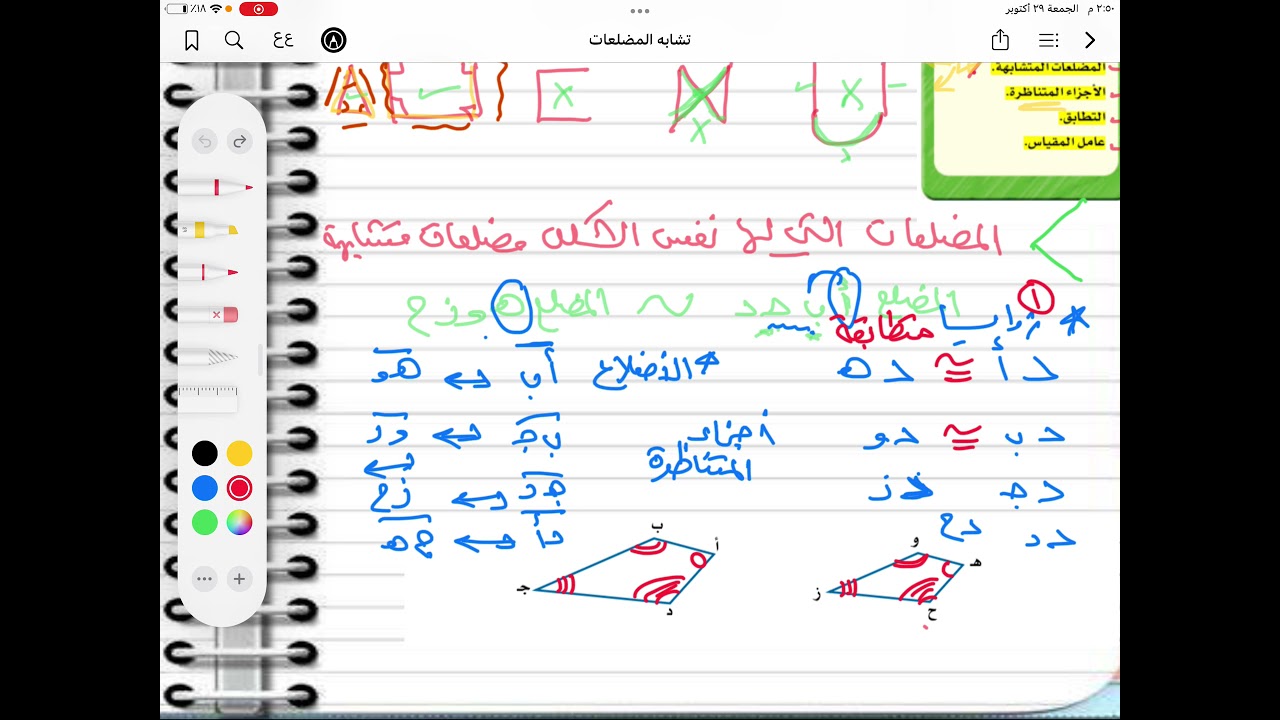 ٢:٥٠ م الجمعة ٢٩ أكتوبر
٪١٨
تشابه المضلعات
المضلعات المتشابهة.
الأجزاء المتناظرة.
التطابق.
عامل المقياس.
المضلعات التي لها نفس الشكل مضلعات متشابهة
المضلع أ ب جـ د ~ المضلع هـ و ز ح
* زوايا متطابقة ١
< أ ≅ < هـ
* الأضلاع أب ↔ هـ و
< ب ≅ < و
أجزاء المتناظرة
ب جـ ↔ و ز
< جـ < ز
جـ د ↔ ز ح
< د < ح
د أ ↔ ح هـ
ب
أ
جـ
د
و
هـ
ز
ح